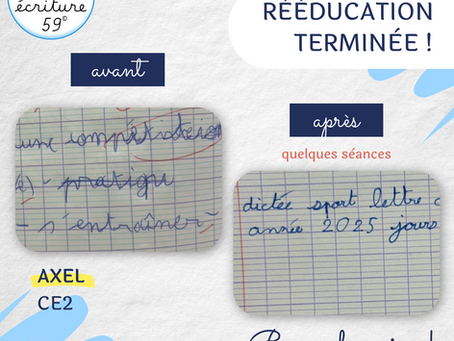 écriture
59©
RÉÉDUCATION
TERMINÉE !
avant
après
quelques séances
une
- pratiqu
- s'entraîner
dictée sport lettre
année 2025 jours
AXEL
CE2